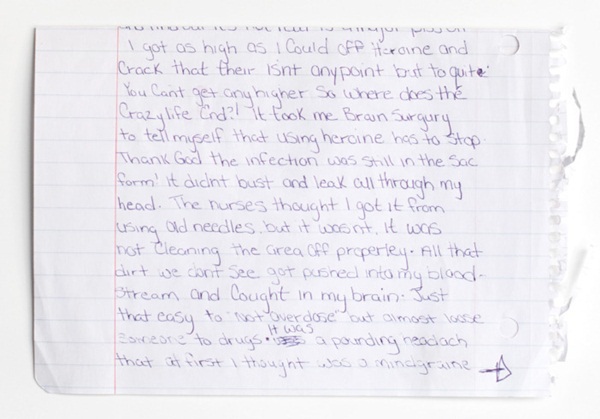 I got as high as I Could off Heroine and
Crack that their isnt anypoint but to quite.
You Cant get any higher so where does the
Crazylife End?! It took me Brain Surgury
to tell myself that using heroine has to stop.
Thank God the infection was still in the Sac
form! It didnt bust and leak all through my
head. The nurses thought I got it from
using old needles. but it wasnt. It was
not Cleaning the area off properley. All that
dirt we cant see got pushed into my blood-
stream and Cought in my brain. Just
that easy to "not overdose" but almost loose
someone to drugs. It was a pounding headach
that at first I thought was a mindgraine →